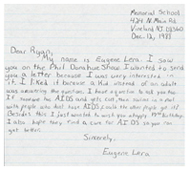 Memorial School
424 S. Main Rd.
Vineland NJ 08360
Dec. 12, 1988
Dear Ryan,
My name is Eugene Lera. I saw
you on the Phil Donahue Show. I wanted to send
you a letter because I was very interested in
it. I liked it because a kid instead of an adult
was answering the question. I have a question to ask you too.
If someone has AIDS and lets
with people who don't have AIDS could the other people get it?
Besides this I just wanted to wish you a happy birthday.
I also hope they find a cure for AIDS so you can
get better.
Sincerely,
Eugene Lera